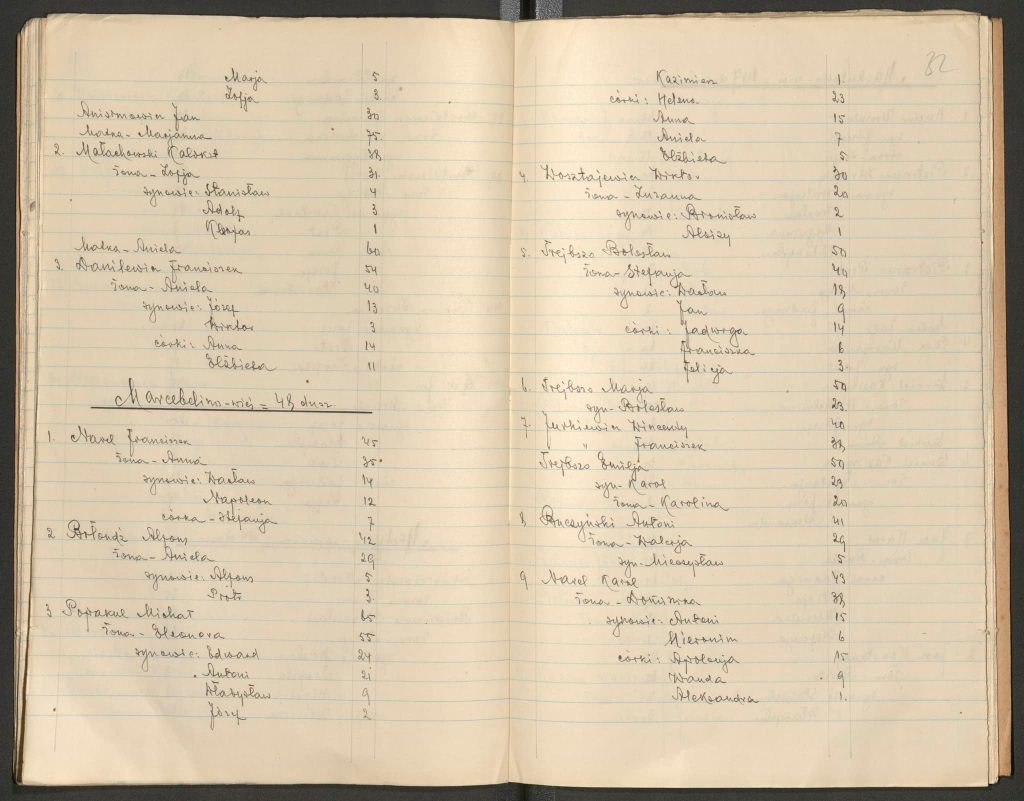 Marja 5
Zofja 3
Anismowicz Jan 30
Matka - Marjanna 75
2. Małachowski Kalikst 38
żona - Zofja 31
synowie: Stanisław 4
Adolf 3
Kleofas 1
Matka - Aniela 60
3. Danilewicz Franciszek 54
żona - Aniela 40
synowie: Józef 13
Wiktor 3
córki: Anna 14
Elżbieta 11
Marcebelino - wieś = 48 dusz
1. Narel Franciszek 45
żona - Anna 35
synowie: Wacław 14
Napoleon 12
córka - Stefanja 7
2 Bołondź Alfons 42
żona - Aniela 29
synowie: Alfons 5
Piotr 3
3 Popakul Michał 65
żona - Eleonora 55
synowie: Edward 24
Antoni 21
Władysław 9
Józef 2
32
Kazimierz 1
córki: Helena 23
Anna 15
Aniela 7
Elżbieta 5
4. Wosztajewicz Wiktor 30
żona - Zuzanna 20
synowie: Bronisław 2
Aloizy 1
5. Trejbszo Bolesław 50
żona - Stefanja 40
synowie: Wacław 18
Jan 9
córki: Jadwiga 14
Franciszka 6
Felicja 3
6. Trejbszo Marja 50
syn - Bolesław 23
7. Jurkiewicz Wincenty 40
" " Franciszek 38
Trejbszo Emilja 50
syn - Karol 23
żona - Karolina 20
8 Buczyński Antoni 41
żona - Walerja 29
syn - Mieczysław 5
9 Narel Karol 43
żona - Dominika 38
synowie: Antoni 15
Hieronim 6
córki: Apolonja 15
Wanda 9
Aleksandra 1